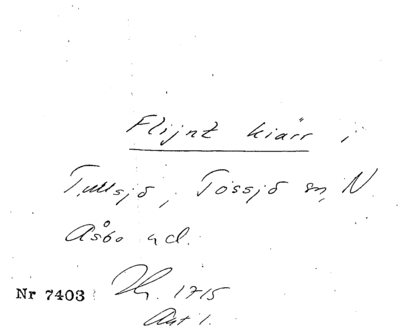 Flijnt kiärr i
Tullsjö, Tössjö sn, N.
Åsbo hd.
Nr 7403 1715
Akt 1.